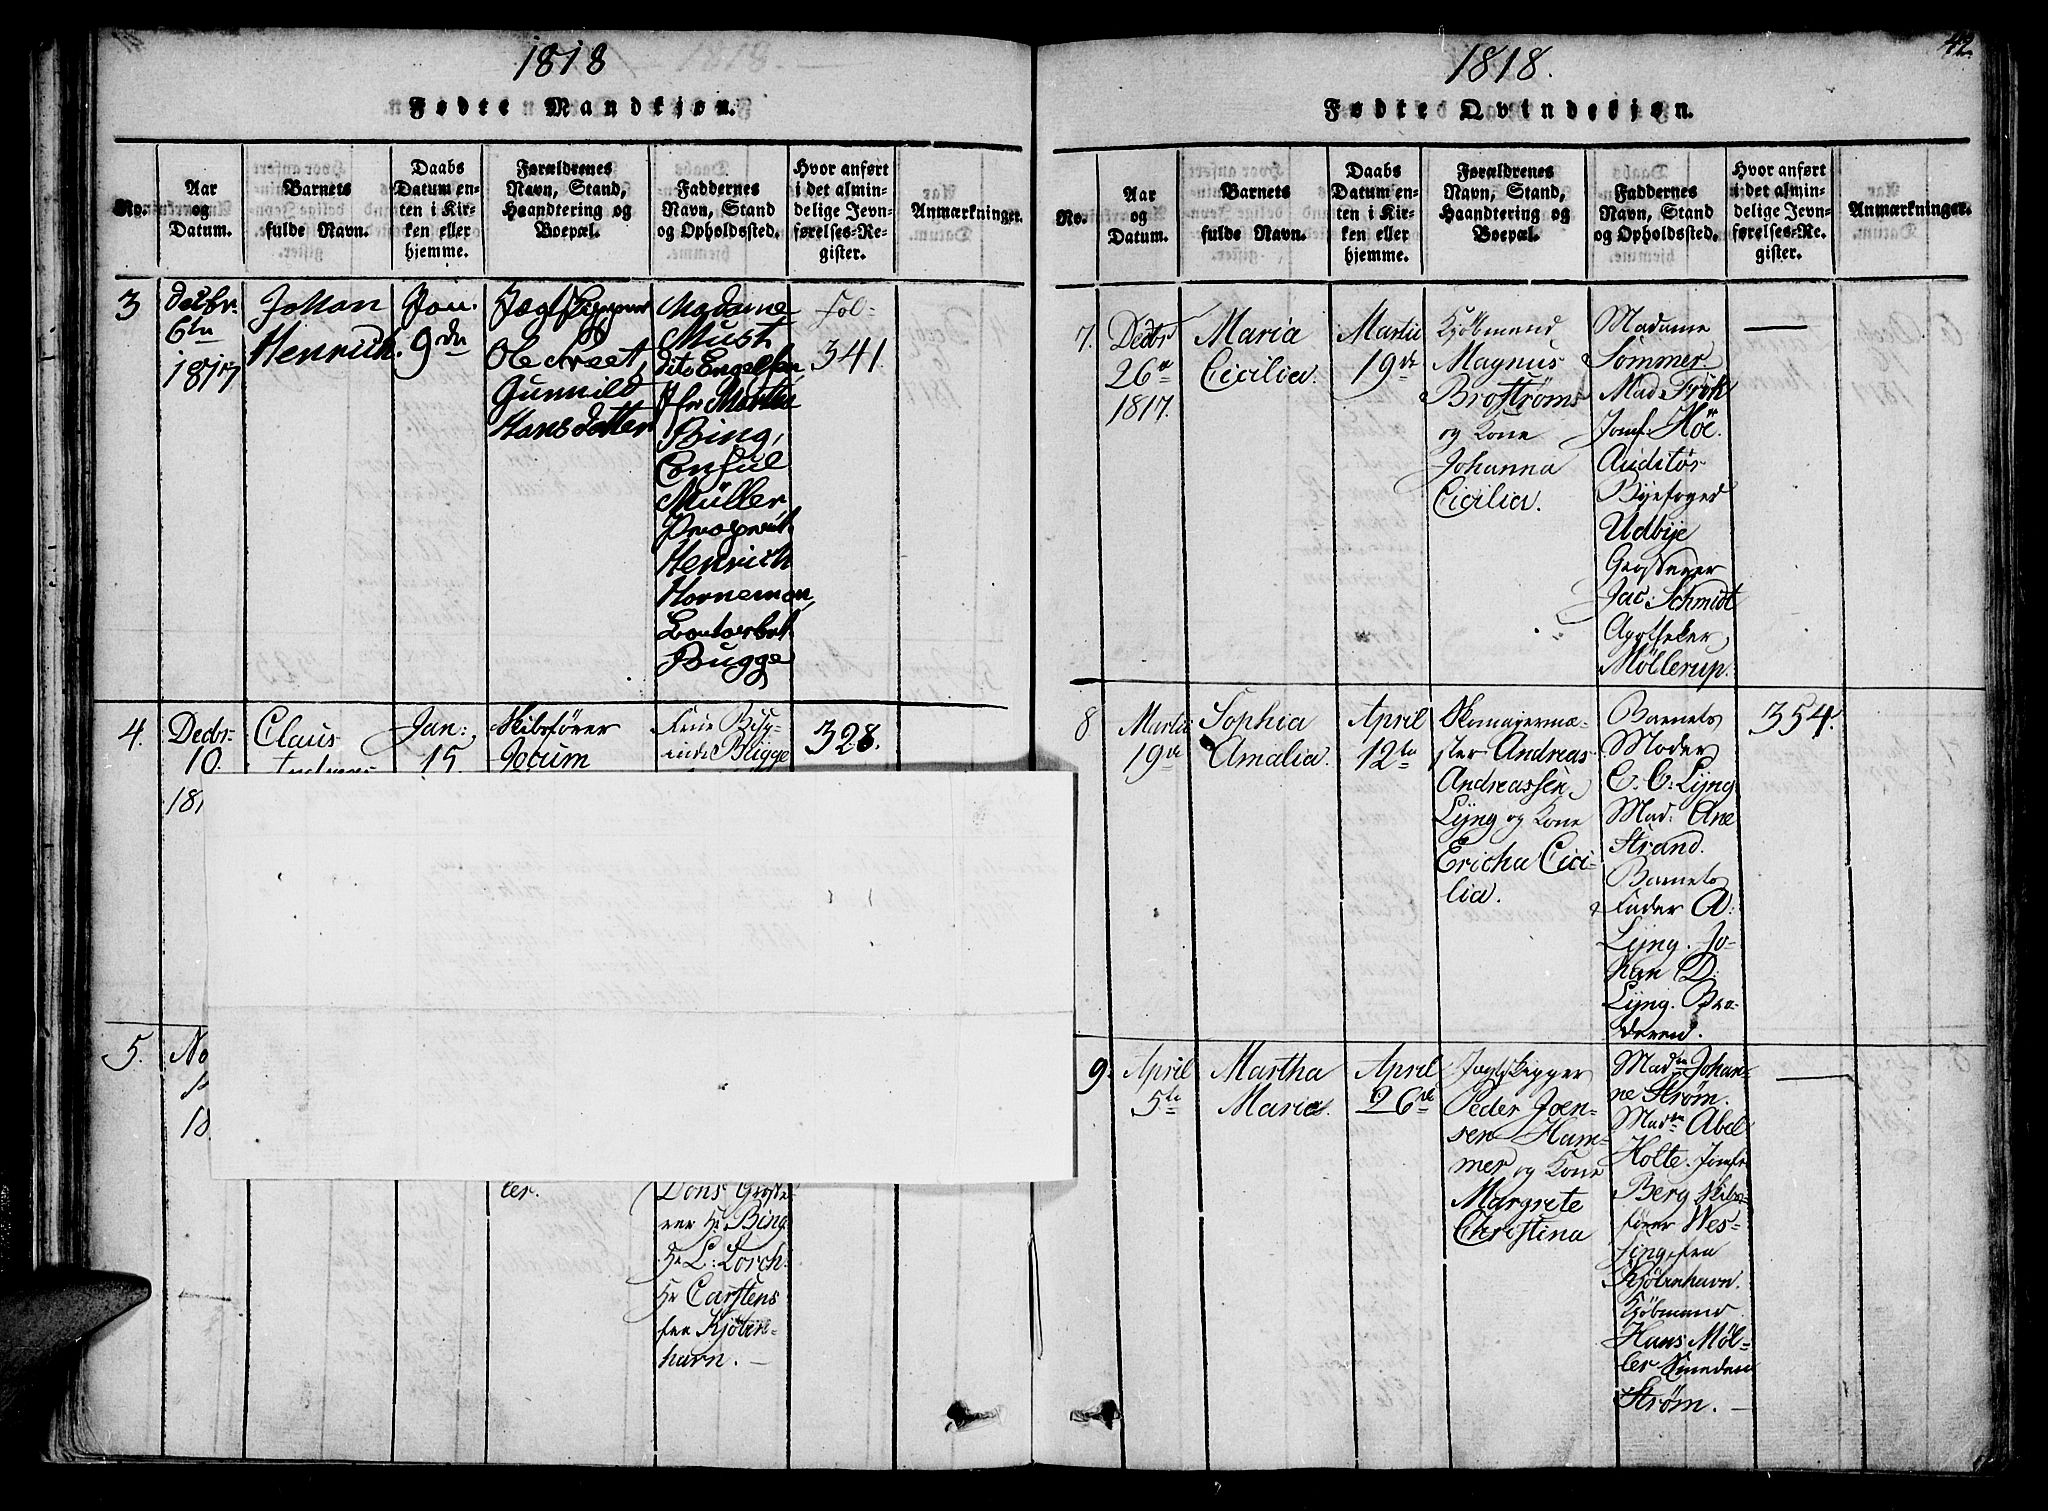 1818
Fødte Mandkjøn.
No.
Aar
og
Datum.
Barnets
fulde Navn.
Daabs
Datum en-
ten i Kir-
ken eller
hjemme.
Forældrenes
Navn, Stand,
Haandtering og
Boepæl.
Faddernes
Navn, Stand
og Opholdssted.
Hvor anført
i det almin-
delige Jevn-
førelses-Re-
gister.
Anmærkninger.
3
Decbr.
6te
1817
Johan
Henrich.
Jan.
9de
Jægtskipper
Ole
Gunnild
Hansdatter
Madame
Must
dito Engelsen,
Jfr Martha
Bing,
Consul
Müller
Henrich
Horneman,
Bugge
Fol-
341.
4.
Decbr.
10.
Claus
Jan:
15
Skibsfører
Jocum
Bugge
328.
5.
No
ler.
Dons Grosse-
rer Hr Bing
Hr L: Lorch
Hr Carstens
fra Kjöben-
havn. —
1818.
42.
Fødte Qvindekjøn.
No.
Aar
og
Datum.
Barnets
fulde Navn.
Daabs
Datum en-
ten i Kir-
ken eller
hjemme.
Forældrenes
Navn, Stand,
Haandtering og
Boepæl.
Faddernes
Navn, Stand
og Opholdssted.
Hvor anført
i det almin-
delige Jevn-
førelses-Re-
gister.
Anmærkninger.
7.
Decbr
26de
1817.
Maria
Cicilia.
Martii
19de
Kjöbmand
Magnus
Broströms
og Kone
Johanna
Cicilia.
Madame
Sommer.
Mad Frök
Jomf. Höe.
Auditör
Byefoged
Udbye
Grosserer
Jac: Schmidt
Apotheker
Möllerup.
8
Martii
19de
Sophia
Amalia.
April
12te
Skomagermæ-
ster Andreas
Andreassen
Lyng og Kone
Ericha Cici-
lia.
Barnets
Moder
C. C: Lyng
Mad: Ane
Strand.
Barnets
Fader A:
Lyng. Jo-
han D:
Lyng. Bro-
deren.
354.
9.
April
5te
Martha
Maria.
April
26de
Jægtskipper
Peder Joen-
sen Ham-
mer og Kone
Margrete
Christina
Madm Johan-
ne Ström.
Madm Abel
Holte. Jomfr
Berg Skibs-
förer Wes-
sing fra
Kjöbenhavn.
Kjöbmand
Hans Möl-
ler
Ström. —